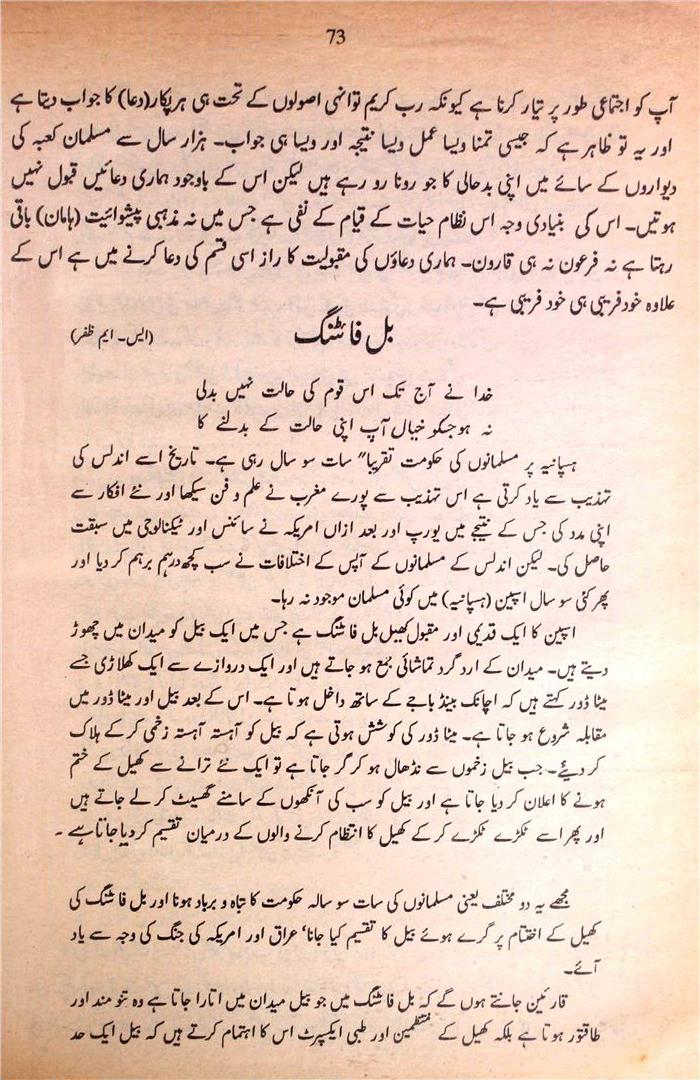 73
آپ کو اجتماعی طور پر تیار کرنا ہے کیونکہ رب کریم تو انہی اصولوں کے تحت ہی ہر پکار (دعا) کا جواب دیتا ہے
اور یہ تو ظاہر ہے کہ جیسی تمنا ویسا عمل ویسا نتیجہ اور ویسا ہی جواب۔ ہزار سال سے مسلمان کعبہ کی
دیواروں کے سائے میں اپنی بدحالی کا جو رونا رو رہے ہیں لیکن اس کے باوجود ہماری دعائیں قبول نہیں
ہوتیں۔ اس کی بنیادی وجہ اس نظام حیات کے قیام کے نفی ہے جس میں نہ مذہبی پیشوائیت (ہامان) باقی
رہتا ہے نہ فرعون نہ ہی قارون۔ ہماری دعاؤں کی مقبولیت کا راز اسی قسم کی دعا کرنے میں ہے اس کے
علاوہ خود فریبی ہی خود فریبی ہے۔
بل فائٹنگ (ایس۔ ایم ظفر)
خدا نے آج تک اس قوم کی حالت نہیں بدلی
نہ ہو جسکو خیال آپ اپنی حالت کے بدلنے کا
ہسپانیہ پر مسلمانوں کی حکومت تقریبا" سات سو سال رہی ہے۔ تاریخ اسے اندلس کی
تہذیب سے یاد کرتی ہے اس تہذیب سے پورے مغرب نے علم و فن سیکھا اور نئے افکار سے
اپنی مدد کی جس کے نتیجے میں یورپ اور بعد ازاں امریکہ نے سائنس اور ٹیکنالوجی میں سبقت
حاصل کی۔ لیکن اندلس کے مسلمانوں کے آپس کے اختلافات نے سب کچھ درہم برہم کر دیا اور
پھر کئی سو سال اسپین (ہسپانیہ) میں کوئی مسلمان موجود نہ رہا۔
اسپین کا ایک قدیمی اور مقبول کھیل بل فائٹنگ ہے جس میں ایک بیل کو میدان میں چھوڑ
دیتے ہیں۔ میدان کے ارد گرد تماشائی جمع ہو جاتے ہیں اور ایک دروازے سے ایک کھلاڑی جسے
میٹا ڈور کہتے ہیں کہ اچانک بینڈ باجے کے ساتھ داخل ہوتا ہے۔ اس کے بعد بیل اور میٹا ڈور میں
مقابلہ شروع ہو جاتا ہے۔ میٹا ڈور کی کوشش ہوتی ہے کہ بیل کو آہستہ آہستہ زخمی کر کے ہلاک
کر دیئے۔ جب بیل زخموں سے نڈھال ہو کر گر جاتا ہے تو ایک نئے ترانے سے کھیل کے ختم
ہونے کا اعلان کر دیا جاتا ہے اور بیل کو سب کی آنکھوں کے سامنے گھسیٹ کر لے جاتے ہیں
اور پھر اسے ٹکڑے ٹکڑے کر کے کھیل کا انتظام کرنے والوں کے درمیان تقسیم کر دیا جاتا ہے۔
مجھے یہ دو مختلف یعنی مسلمانوں کی سات سو سالہ حکومت کا تباہ و برباد ہونا اور بل فائٹنگ کی
کھیل کے اختتام پر گرے ہوئے بیل کا تقسیم کیا جانا' عراق اور امریکہ کی جنگ کی وجہ سے یاد
آئے۔
قارئین جانتے ہوں گے کہ بل فائٹنگ میں جو بیل میدان میں اتارا جاتا ہے وہ تنو مند اور
طاقتور ہوتا ہے بلکہ کھیل کے منتظمین اور طبی ایکسپرٹ اس کا اہتمام کرتے ہیں کہ بیل ایک حد